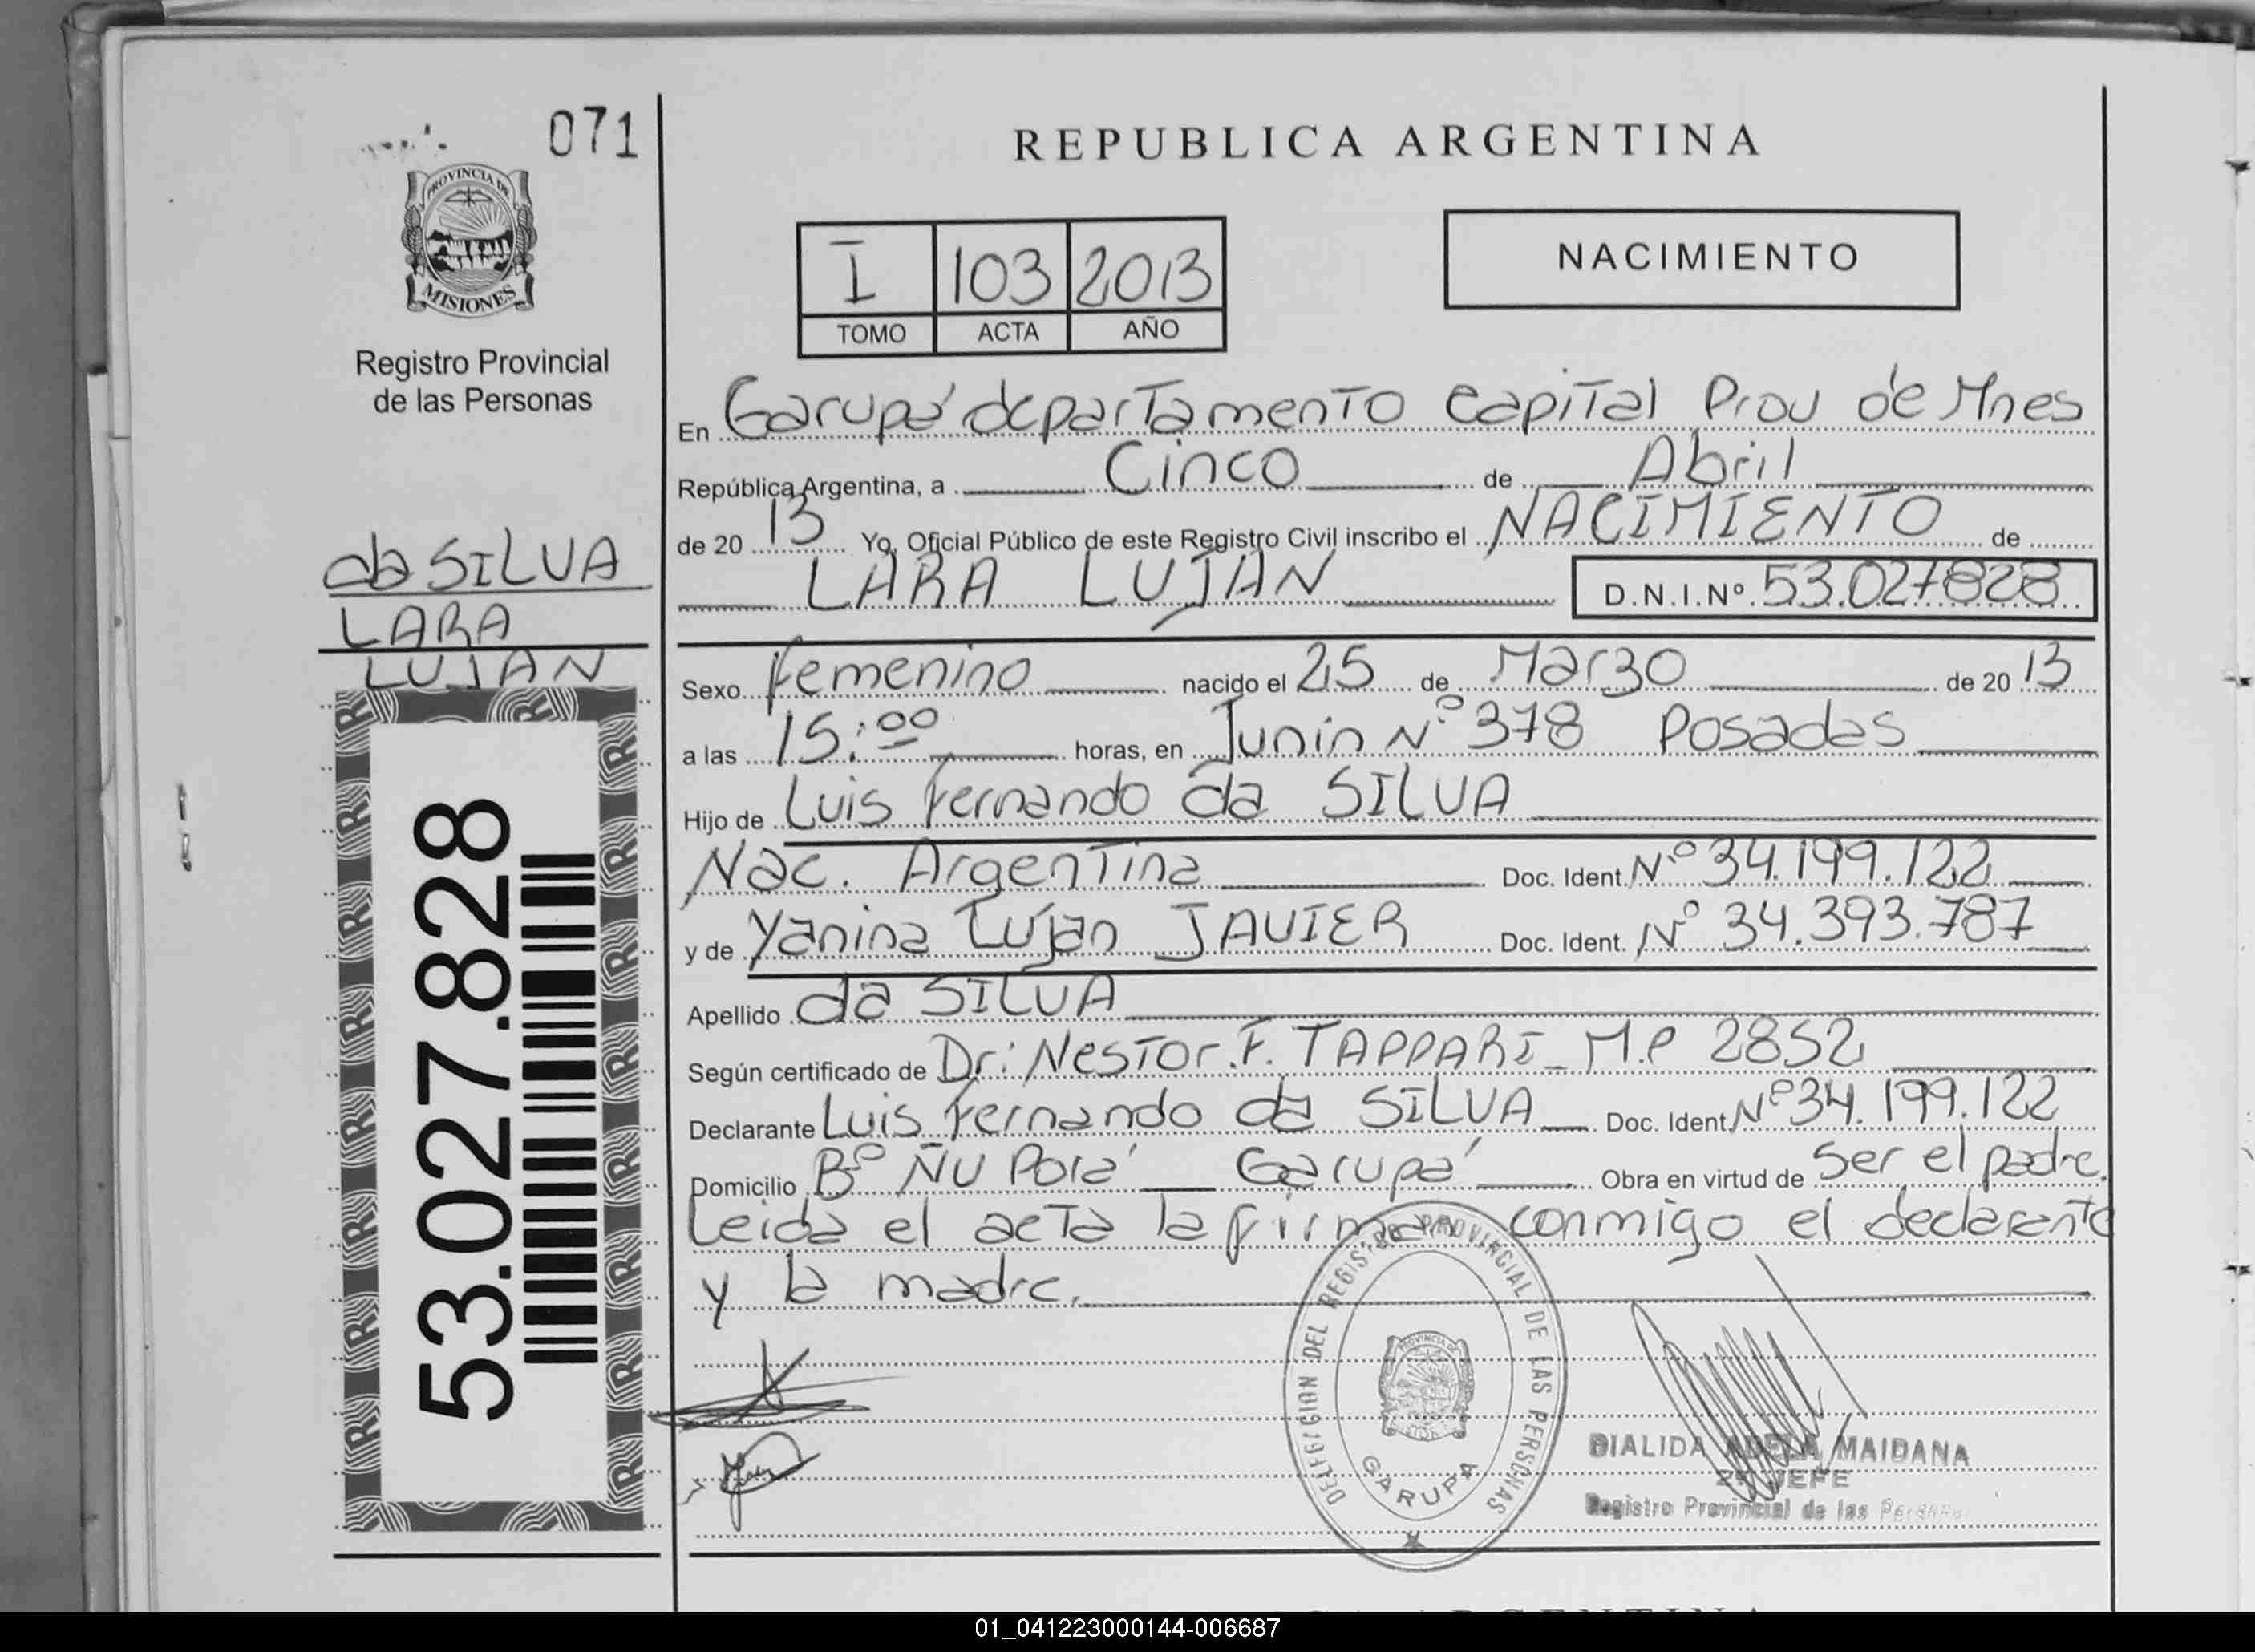 071
PROVINCIA DE
MISIONES
Registro Provincial
de las Personas
da SILVA
LARA
LUJAN
53.027.828
REPUBLICA ARGENTINA
I 103 2013
TOMO ACTA AÑO
NACIMIENTO
En Garupá departamento Capital Prov de Mnes
República Argentina, a Cinco de Abril
de 20 13 Yo, Oficial Público de este Registro Civil inscribo el NACIMIENTO de
LARA LUJAN D.N.I.Nº 53.027828
Sexo Femenino nacido el 25 de Marzo de 20 13
a las 15:00 horas, en Junin Nº 378 Posadas
Hijo de Luis Fernando da SILVA
Nac. Argentina Doc. Ident. Nº 34.199.122
y de Yanina Luján JAVIER Doc. Ident. Nº 34.393.787
Apellido da SILVA
Según certificado de Dr: Nestor.F. TAPPARI_ M.P 2852
Declarante Luis Fernando da SILVA Doc. Ident. Nº 34.199.122
Domicilio Bº ÑU Porá _ Garupá Obra en virtud de Ser el padre.
Leida el acta la firman conmigo el declarante
y la madre.
DELEGACION DEL REGISTRO PROVINCIAL DE LAS PERSONAS
GARUPA
DIALIDA ADELA MAIDANA
2º JEFE
Registro Provincial de las Personas
01_041223000144-006687